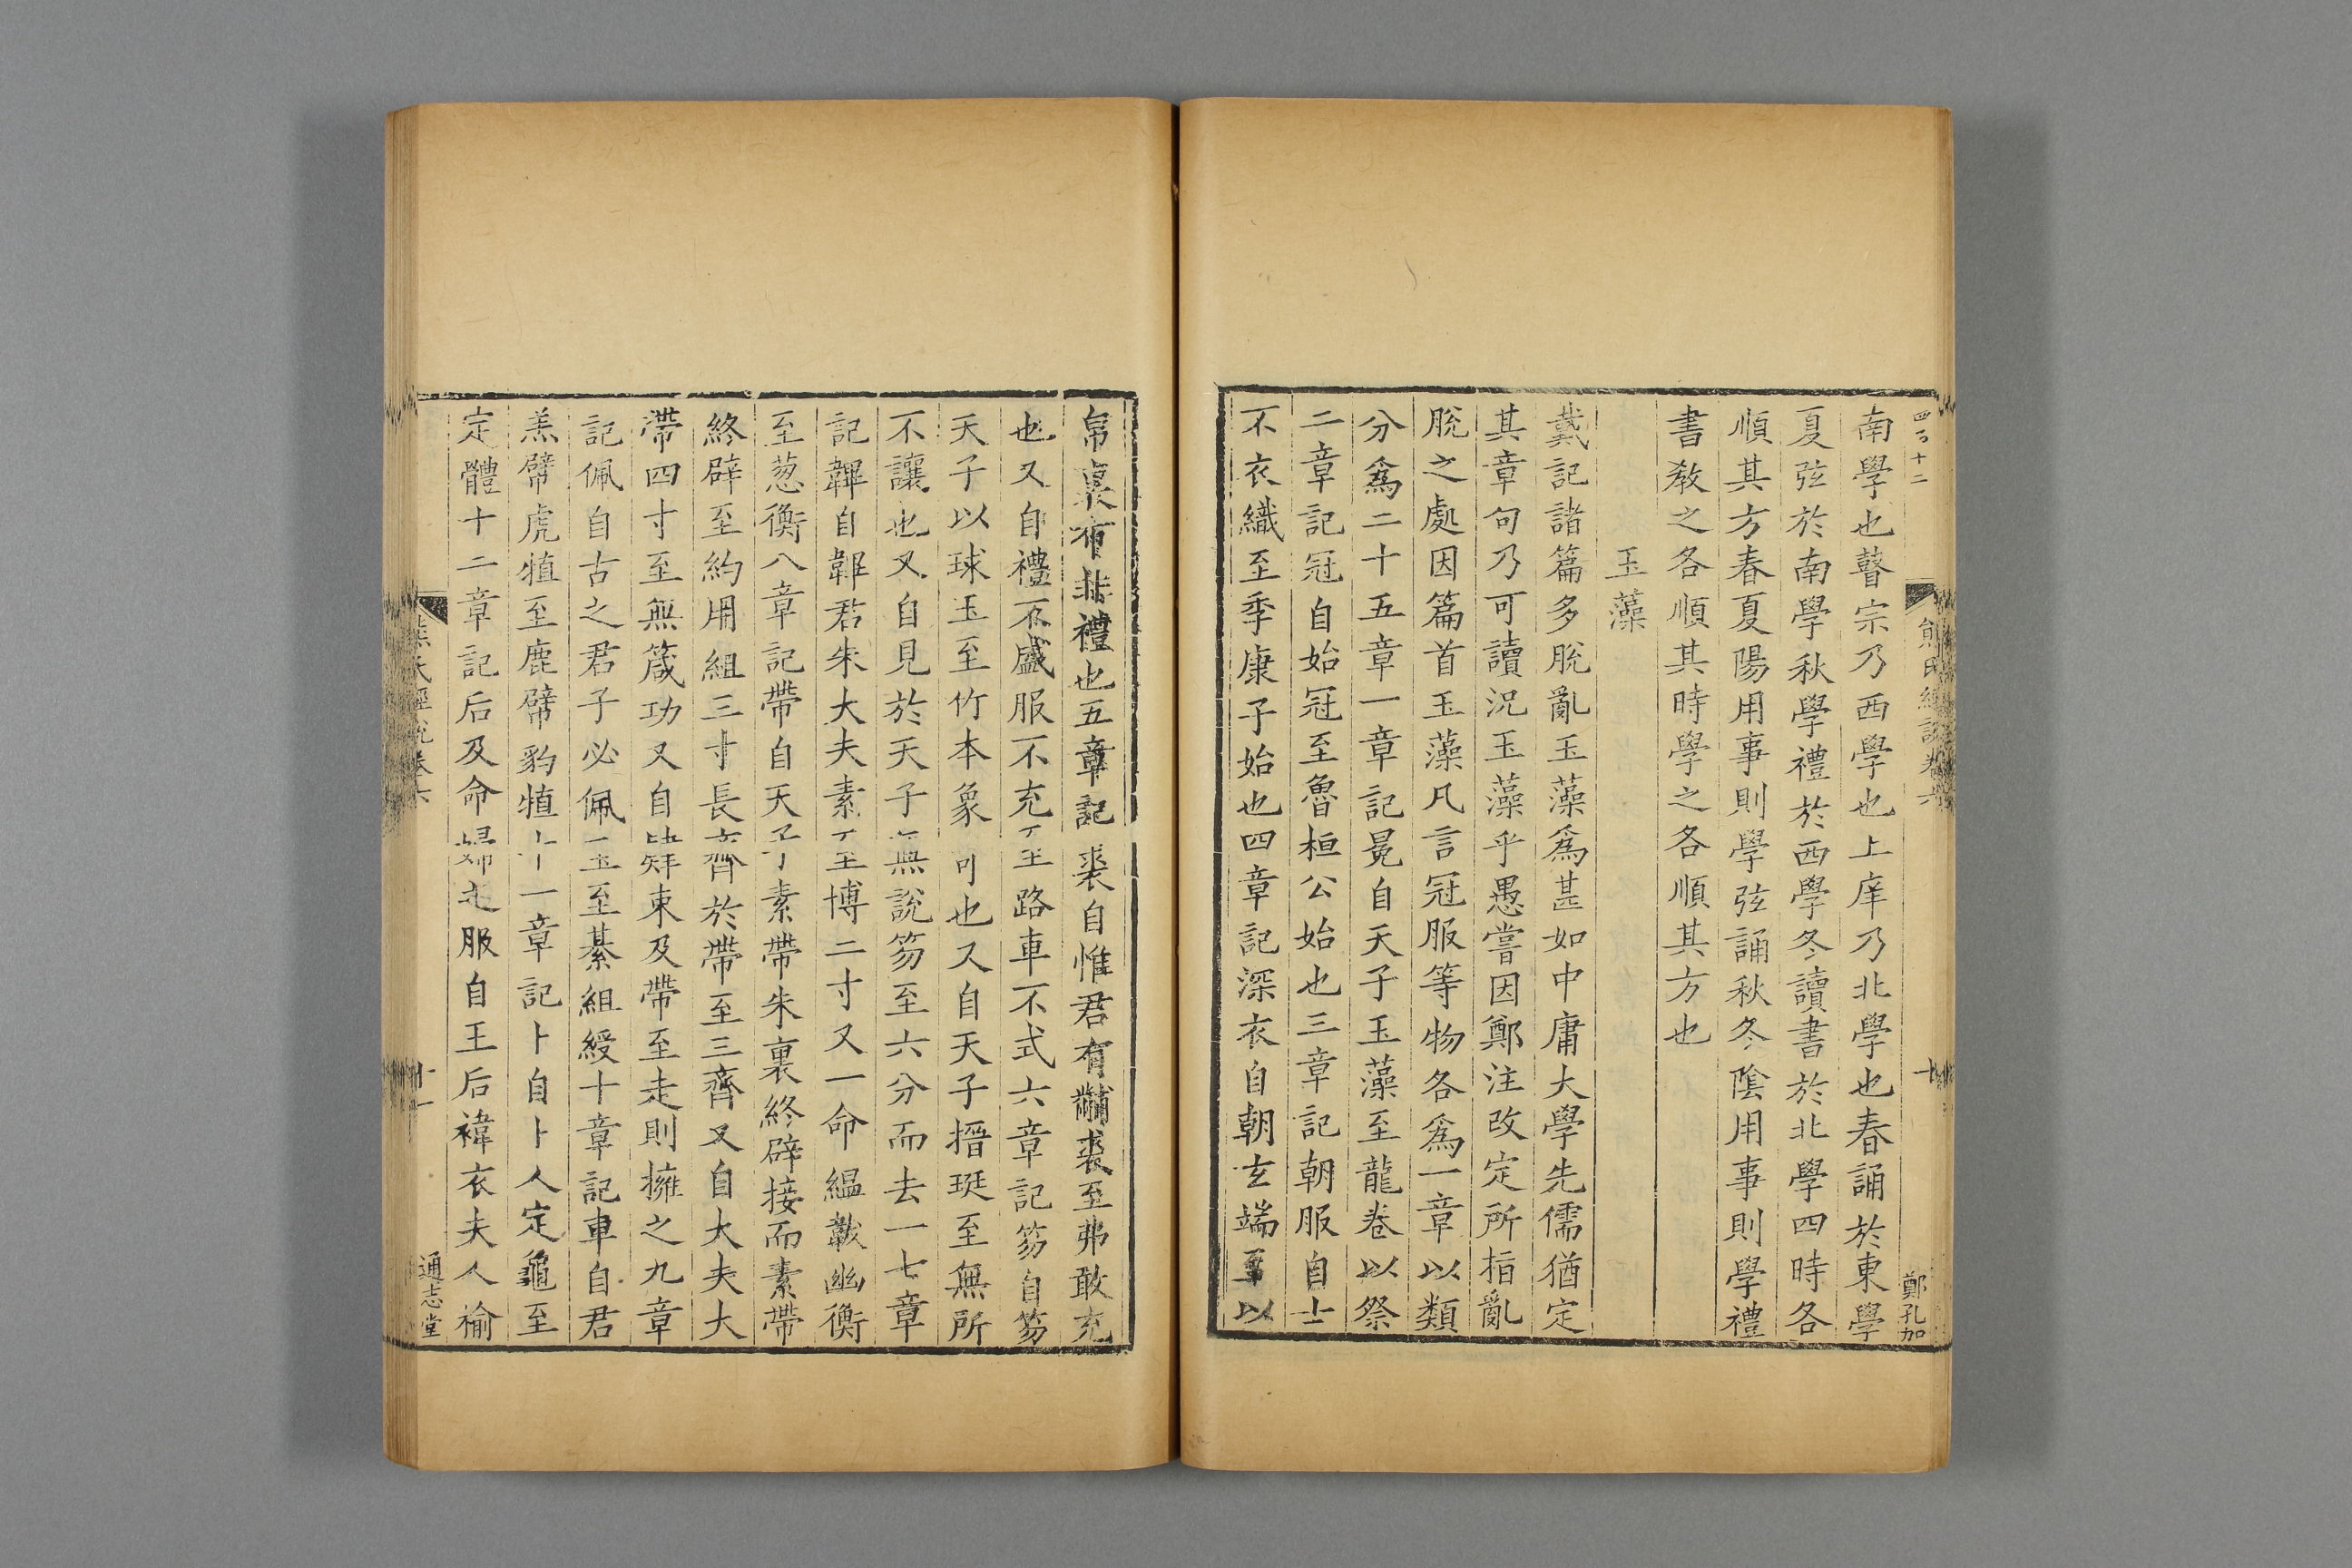 四百十二
南學也瞽宗乃西學也上庠乃北學也春誦於東學
夏弦於南學秋學禮於西學冬讀書於北學四時各
順其方春夏陽用事則學弦誦秋冬陰用事則學禮
書敎之各順其時學之各順其方也
玉藻
戴記諸篇多脫亂玉藻爲甚如中庸大學先儒猶定
其章句乃可讀況玉藻乎愚嘗因鄭注改定所指亂
脫之處因篇首玉藻凡言冠服等物各爲一章以類
分爲二十五章一章記冕自天子玉藻至龍卷以祭
二章記冠自始冠至魯桓公始也三章記朝服自士
不衣織至季康子始也四章記深衣自朝玄端至以
熊氏經說卷六
十
鄭孔加
帛裏布非禮也五章記裘自惟君有黼裘至弗敢充
也又自禮不盛服不充至路車不式六章記笏自笏
天子以球玉至竹本象可也又自天子搢珽至無所
不讓也又自見於天子無說笏至六分而去一七章
記韠自韠君朱大夫素至博二寸又一命縕韍幽衡
至葱衡八章記帶自天子素帶朱裏終辟接而素帶
終辟至約用組三寸長齊於帶至三齊又自大夫大
帶四寸至無箴功又自肆束及帶至走則擁之九章
記佩自古之君子必佩玉至綦組綬十章記車自君
羔幦虎犆至鹿幦豹犆十一章記卜自卜人定龜至
定體十二章記后及命婦之服自王后褘衣夫人褕
熊氏經說卷六
十一
通志堂